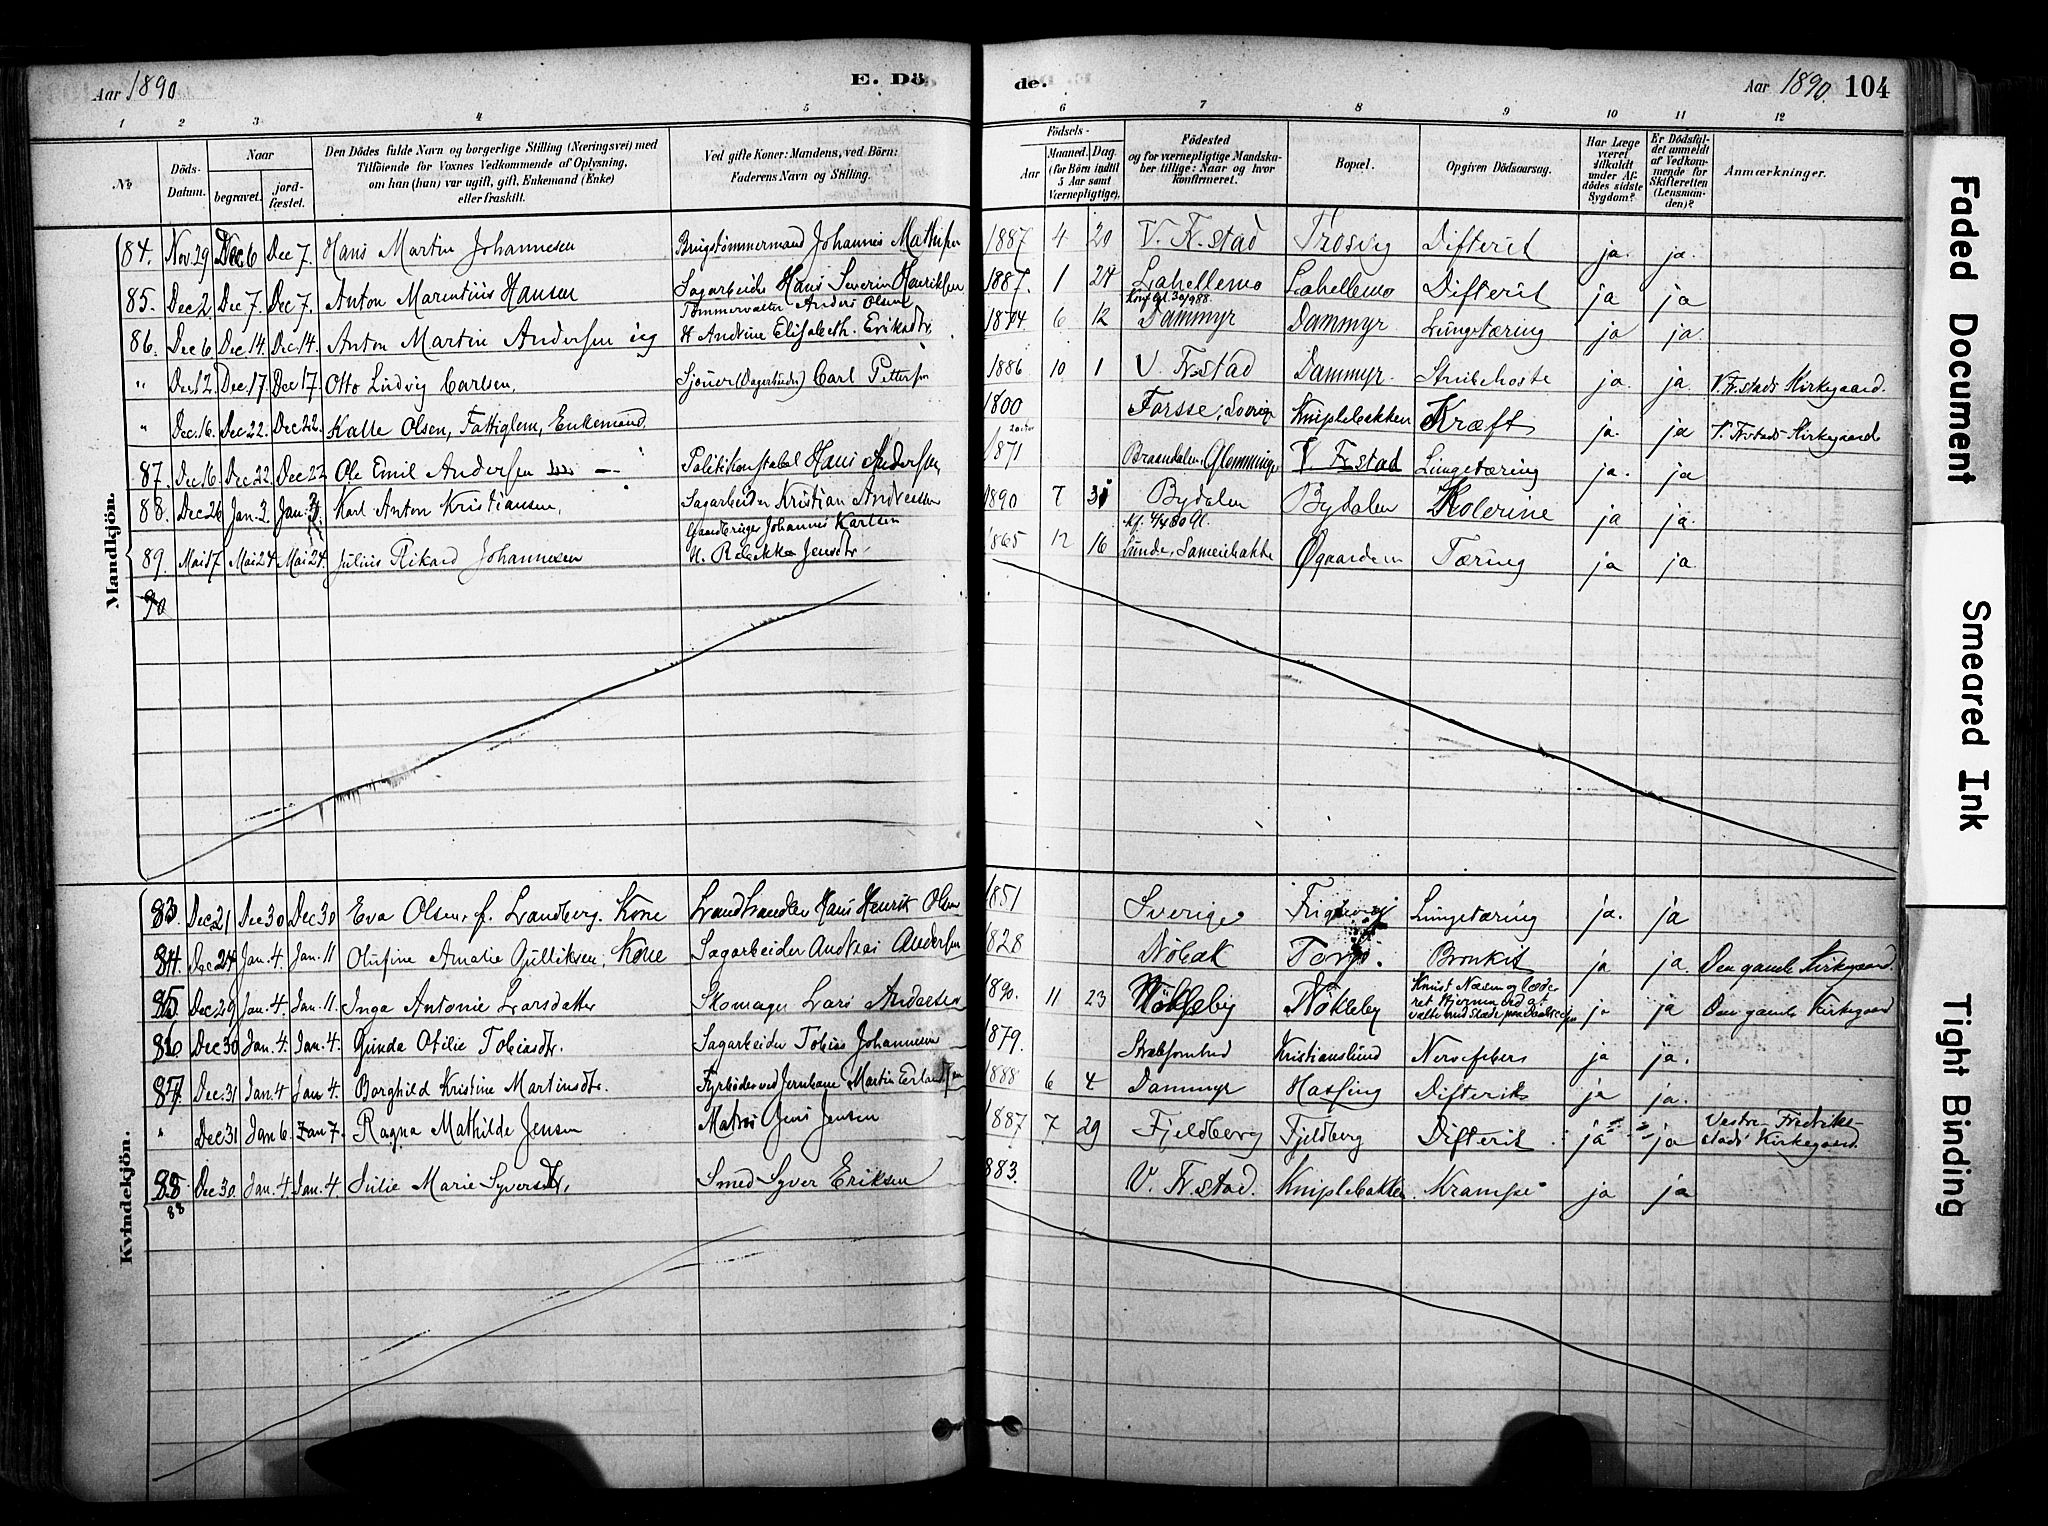 Aar 1890
E. Dö
de.
Aar 1890. 104
1 2 3 4 5 6 7 8 9 10 11 12
No
Döds-Datum.
Naar
begravet.
jord-fæstet.
Den Dödes fulde Navn og borgerlige Stilling (Næringsvei) med
Tilföiende for Voxnes Vedkommende af Oplysning,
om han (hun) var ugift, gift, Enkemand (Enke)
eller fraskilt.
Ved gifte Koner: Mandens, ved Börn:
Faderens Navn og Stilling.
Födsels-
Aar
Maaned. Dag.
(for Börn indtil
5 Aar samt
Værnepligtige).
Födested
og for værnepligtige Mandska-
ber tillige: Naar og hvor
konfirmeret.
Bopæl.
Opgiven Dödsaarsag.
Har Læge
været
tilkaldt
under Af-
dödes sidste
Sygdom?
Er Dödsfal-
det anmeldt
af Vedkom-
mende for
Skifteretten
(Lensman-
den)?
Anmærkninger.
Mandkjön.
84. Nov. 29 Dec 6 Dec 7. Hans Martin Johannesen Brugstømmermand Johannes Mathisen 1887 4 20 V. Fr.stad Trosvig Difterit ja. ja.
85. Dec 2. Dec 7. Dec 7. Anton Marentius Hansen Sagarbeider Hans Severin Henriksen 1887. 1 24 Lahellemo Lahellemo Difterit ja ja
Tømmervalter Anders Olsen
86. Dec 6 Dec 14. Dec. 14. Anton Martin Andersen ug H. Andrine Elisabeth Eriksdtr. 1874 6 12 Dammyr Dammyr Lungetæring ja ja.
" Dec. 12. Dec. 17 Dec 17. Otto Ludvig Carlsen, Sjouer (Dagarbeider) Carl Pettersen 1886 10 1 V. Fr.stad Dammyr. Strubehoste ja. ja. V. Fr.stads Kirkegaard.
" Dec. 16. Dec. 22. Dec. 22. Kalle Olsen, Fattiglem, Enkemand. 1800 Forsse, Sverige Kniplebakken Kræft ja. ja V. Fr.stads Kirkegaard
87. Dec 16 Dec. 22 Dec. 22 Ole Emil Andersen Politikonstabel Hans Andersen, 1871 Braandalen, Glemminge V. Fr.stad Lungetæring ja. ja
88. Dec 26 Jan. 3. Jan. 3. Karl Anton Kristiansen, Sagarbeider Kristian Andreassen 1890 7 31 Bydalen Bydalen Kolerine ja ja.
Gaardbruger Johannes Karlsen
89. Mai 17 Mai 24 Mai 24. Julius Rikard Johannesen H. Rebekka Jensdtr. 1865 12 16 Lunde, Øgaarden Tæring ja ja.
90
Kvindekjön.
83. Dec. 21 Dec 30 Dec 30 Eva Olsen, f. Landberg. Kone Landhandler Hans Henrik Olsen 1851 Sverige Lungetæring ja. ja
84. Dec. 24 Jan. 4. Jan. 11 Olufine Amalie Gulliksen, Kone Sagarbeider Andreas Andersen 1828 Nöbak Torp. Bronkit ja ja. Den gamle Kirkegaard.
85. Dec 29 Jan. 4. Jan. 11. Inga Antonie Larsdatter Skomager Lars Andersen 1890. 11 23 Nökleby Nökleby ja ja Den gamle Kirkegaard
86 Dec 30 Jan. 4. Jan. 4. Gunda Otilie Tobiasdtr. Sagarbeider Tobias Johannesen 1879. Kristianslund Nervefeber ja ja.
87. Dec. 31 Jan. 4 Jan. 4 Borghild Kristine Martinsdtr. Fyrbøder ved Jernbane Martin Erlandsen 1888 6 4 Dammyr Hassing Difterit ja ja.
" Dec 31 Jan 6. Jan 7. Ragna Mathilde Jensen Matros Jens Jensen 1887 7 29 Fjeldberg Fjeldberg Difterit ja ja Vestre Fredrikstads Kirkegaard.
88 Dec 30. Jan. 4 Jan. 4 Julie Marie Syversdtr, Smed Syver Eriksen 1883. V. Fr.stad. Kniplebakken. Krampe ja ja
88
Faded Document
Smeared Ink
Tight Binding